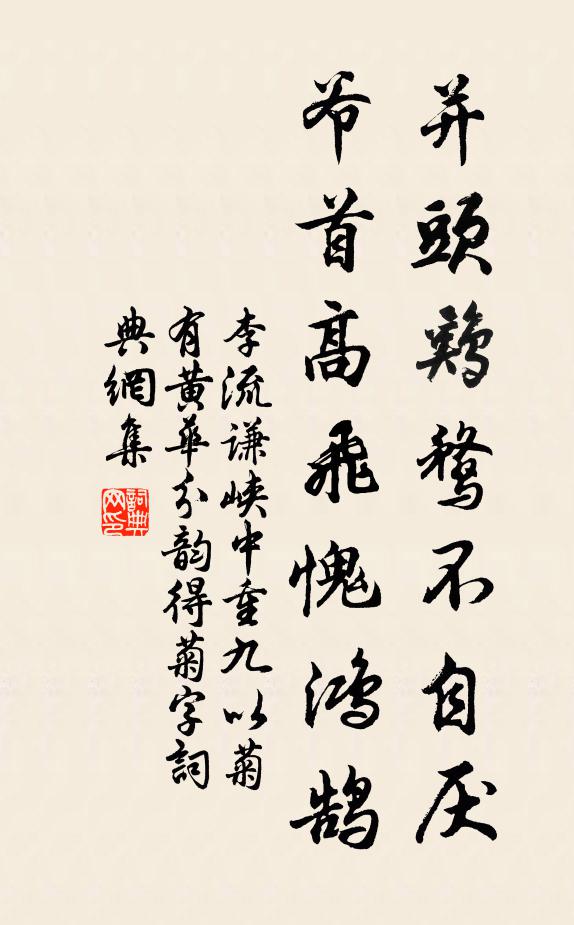 并頭鷄鶩不自厌
首高飛愧鴻鵠
李流謙峽中重九以菊
有黄華分韵得菊字詞
典網集
詞典网印